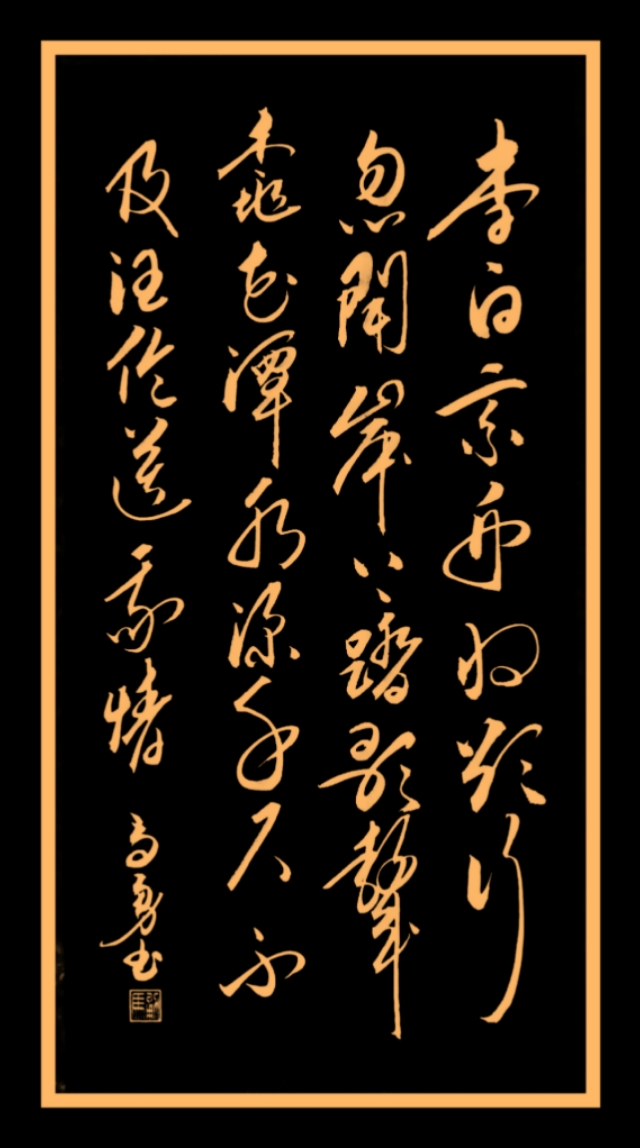 李白乘舟将欲行
忽聞岸上踏歌聲
桃花潭水深千尺不
及汪伦送我情
高勇书